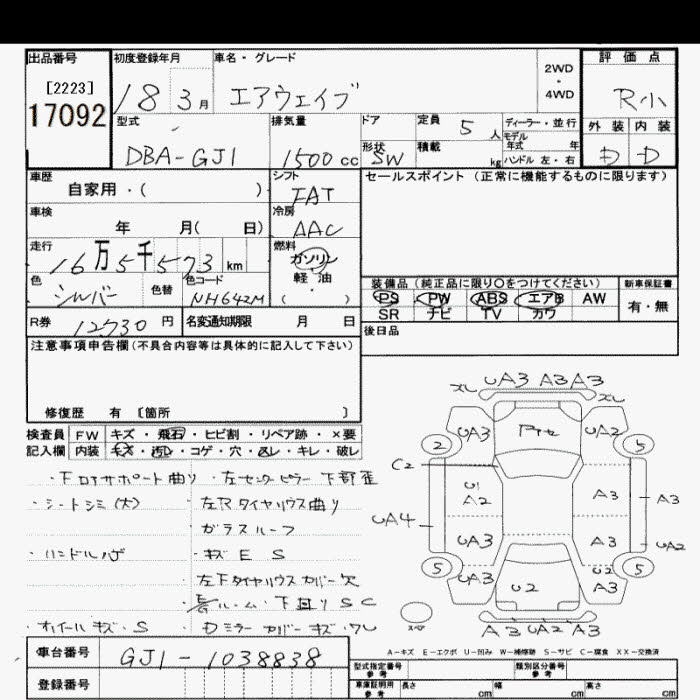 出品番号 初度登録年月 車名・グレード 2WD ・ 4WD 評価点
[2223] 17092 18 3月 エアウェイブ R小
外装 内装
D D
型式 排気量 ドア 定員 5人 ディーラー・並行
モデル年式 年
DBA-GJ1 1500cc 形状 SW 積載 kg ハンドル 左・右
車歴 自家用・( ) シフト FAT セールスポイント (正常に機能するものに限ります)
車検 年 月( 日) 冷房 AAC
走行 16万5千573km 燃料 ガソリン 軽油 ( ・ )
色 シルバー 色替 色コード NH642M
装備品 (純正品に限り○をつけてください) 新車保証書
PS PW ABS エアB AW 有・無
SR ナビ TV カワ
R券 12730円 名変通知期限 月 日
後日品
注意事項申告欄 (不具合内容等は具体的に記入して下さい)
修復歴 有 [箇所 ]
検査員 FW キズ・飛石・ヒビ割・リペア跡・×要
記入欄 内装 キズ・汚レ・コゲ・穴・凹レ・キレ・破レ
・下口アサポート曲り ・左センターピラー下部歪
・シートシミ(大) 左Rタイヤハウス曲り
ガラスルーフ
・ハンドルハゲ ・キズ E S
左下タイヤハウスカバー穴
ルーム・下廻り S C
・ホイールキズ・S ・Dミラーカバーキズ・ワレ
XL UA3 A3 A3 XL
2 UA3 P12 UA2 5
C2
U1 A2 A3 A3
UA4
UA3 A3 UA2
5 UA3 U2 U2 A3 5
スペア
A3 UA2 A3
A-キズ E-エクボ U-凹み W-補修跡 S-サビ C-腐食 XX-交換済
車台番号 GJ1-1038838
型式指定番号 参考 類別区分番号 参考
登録番号
車庫証明用 参考 長さ cm 幅 cm 高さ cm